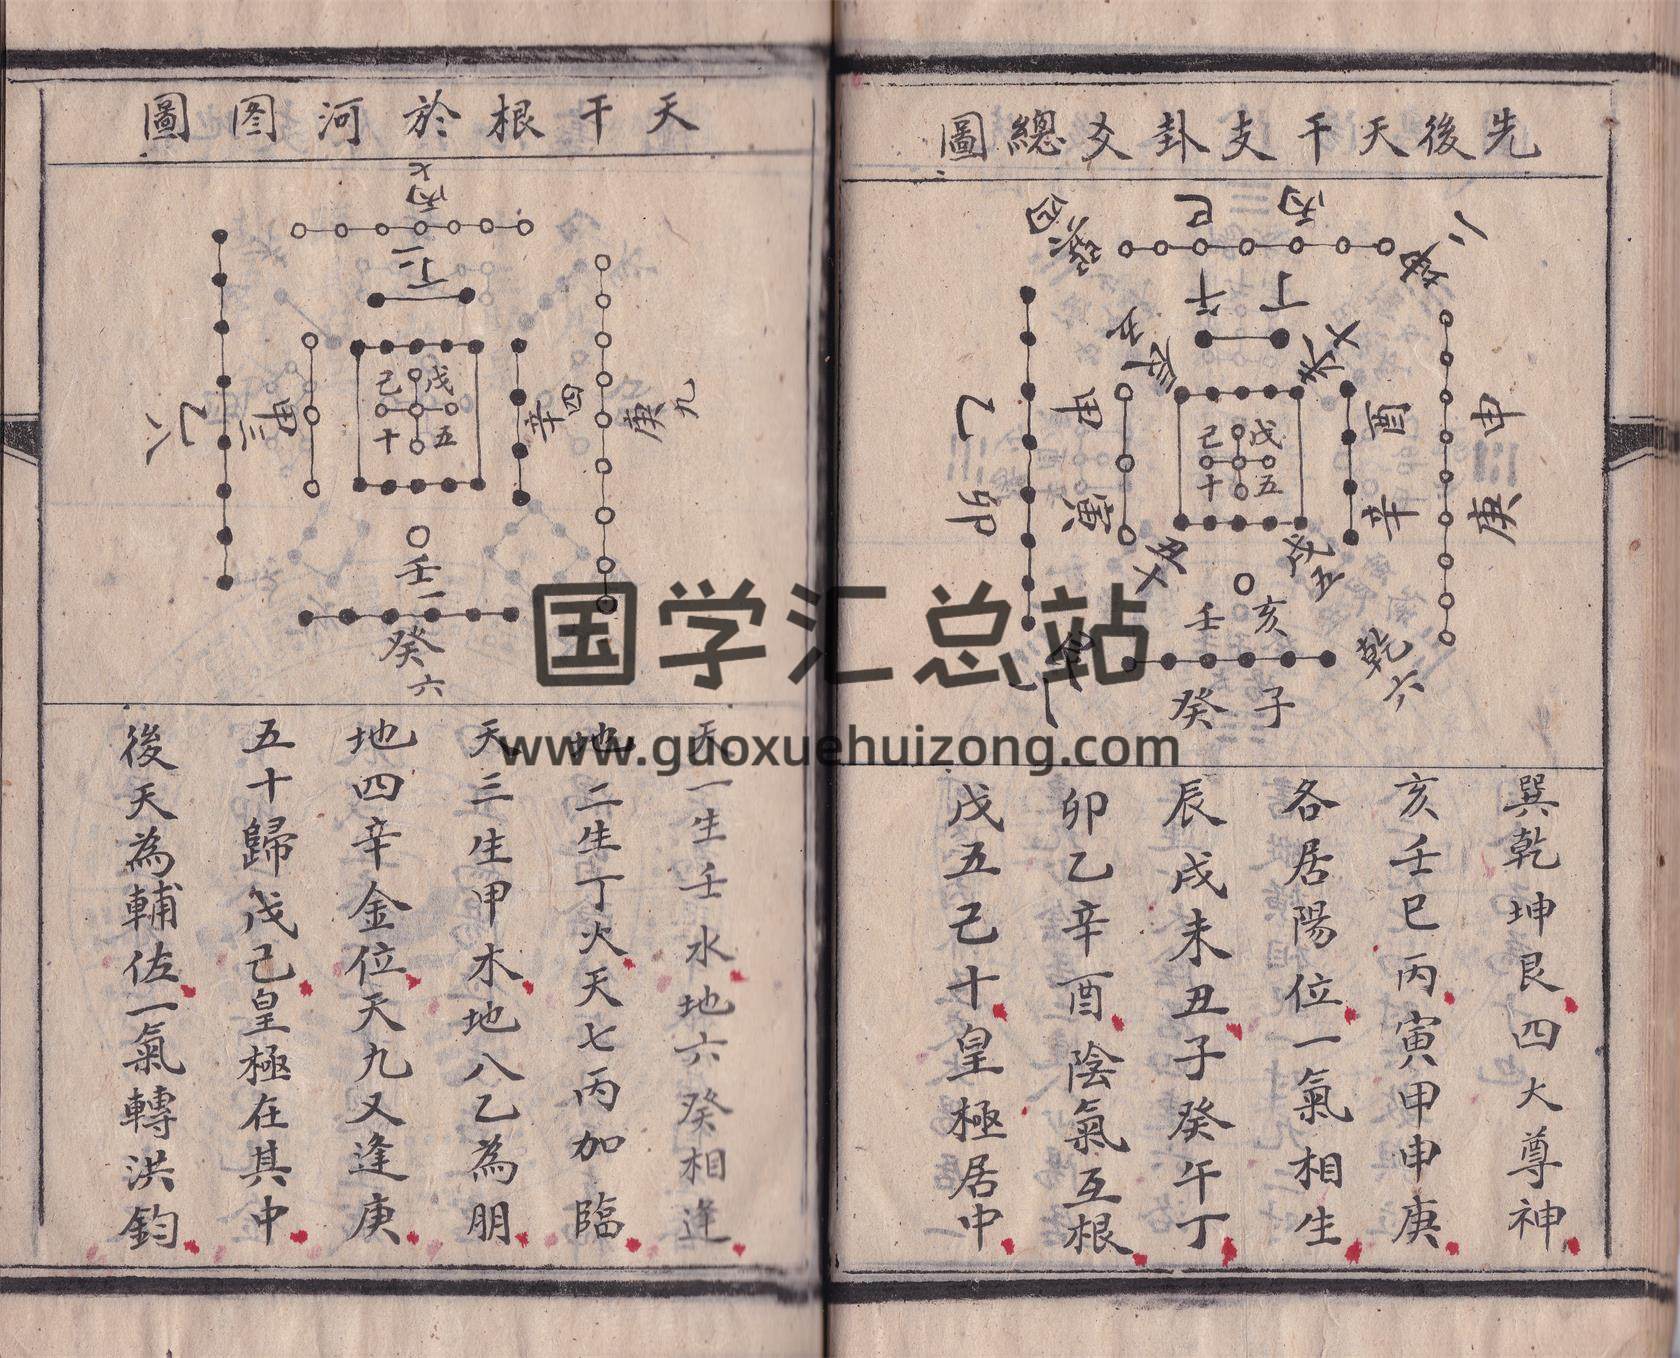 先後天干支卦爻總圖
丙
巳
巽四
坤二
丁
午
辰五
未七
乙
甲
己
戊
十
五
酉
申
卯
寅
辛
庚
丑十
戌五
壬
亥
艮八
乾六
癸
子
巽乾坤艮四大尊神
亥壬巳丙寅甲申庚
各居陽位一氣相生
辰戌未丑子癸午丁
卯乙辛酉陰氣互根
戊五己十皇極居中
天干根於河图圖
丙七
丁二
乙八
甲三
己
戊
十
五
辛四
庚九
壬一
癸六
天一生壬水地六癸相逢
地二生丁火天七丙加臨
天三生甲木地八乙為朋
地四辛金位天九又逢庚
五十歸戊己皇極在其中
後天為輔佐一氣轉洪鈞
国学汇总站
www.guoxuehuizong.com